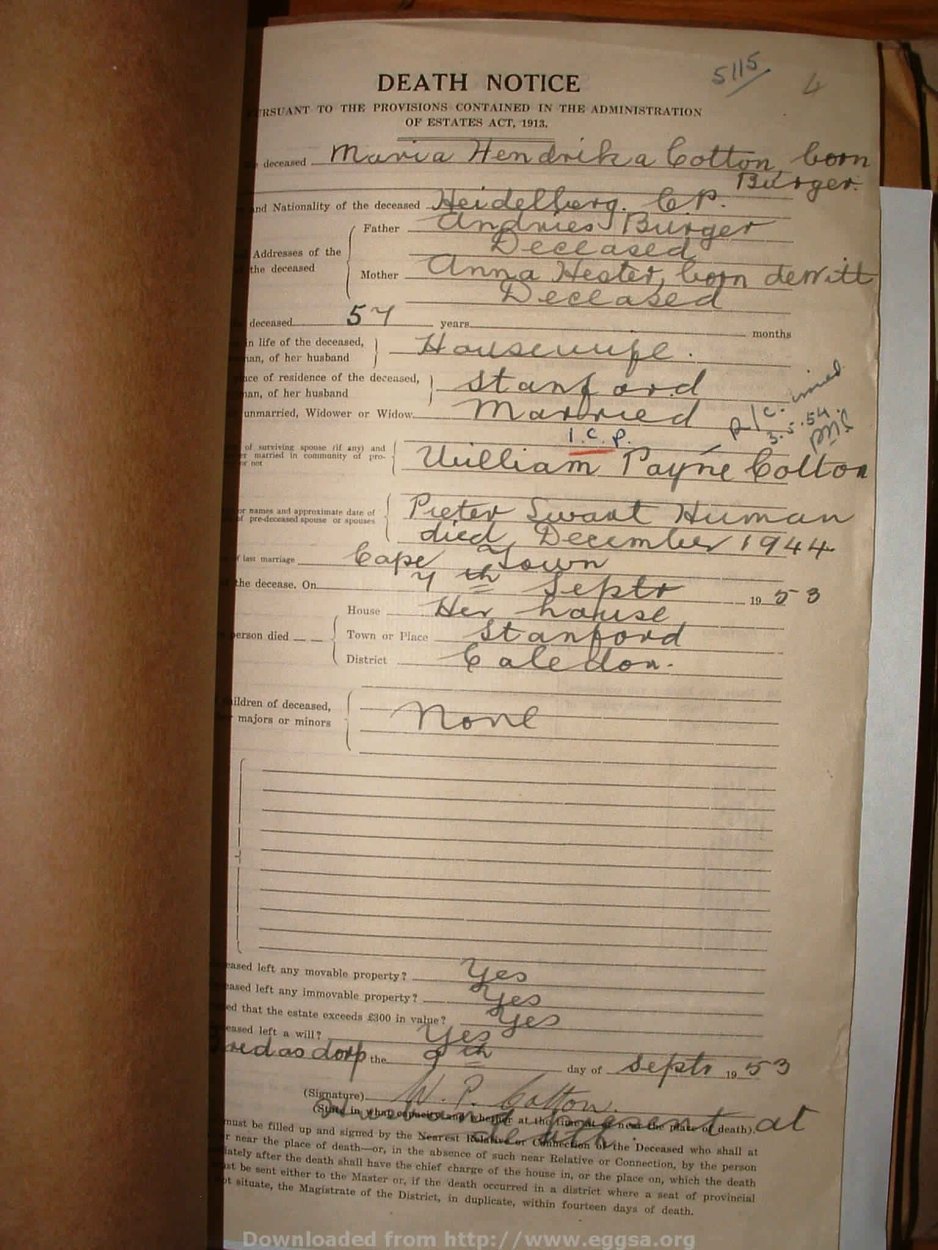 5115
4
DEATH NOTICE
PURSUANT TO THE PROVISIONS CONTAINED IN THE ADMINISTRATION
OF ESTATES ACT, 1913.
deceased Maria Hendrika Cotton, born
Burger.
and Nationality of the deceased Heidelberg. C.P.
Father Andries Burger
Deceased
Addresses of the
the deceased
Mother Anna Hester, born dewitt
Deceased
deceased 57 years months
in life of the deceased,
man, of her husband Housewife.
ace of residence of the deceased,
man, of her husband Stanford
unmarried, Widower or Widow Married
3.5.54
I.C.P.
of surviving spouse (if any) and
er married in community of pro-
or not William Payne Cotton
or names and approximate date of
of pre-deceased spouse or spouses Pieter Swart Human
died, December 1944
of last marriage Cape Town
the decease. On 7th Septr 1953
House Her house
person died Town or Place Stanford
District Caledon.
ildren of deceased,
majors or minors None
eased left any movable property? Yes
eased left any immovable property? Yes
ed that the estate exceeds £300 in value? Yes
eased left a will? Yes
redasdorp the 9th day of Septr 1953
(Signature) W. P. Cotton.
(State in what capacity and whether at the time at or near the place of death).
present at
must be filled up and signed by the Nearest Relative or Connection of the Deceased who shall at
r near the place of death—or, in the absence of such near Relative or Connection, by the person
iately after the death shall have the chief charge of the house in, or the place on, which the death
st be sent either to the Master or, if the death occurred in a district where a seat of provincial
ot situate, the Magistrate of the District, in duplicate, within fourteen days of death.
Downloaded from http://www.eggsa.org